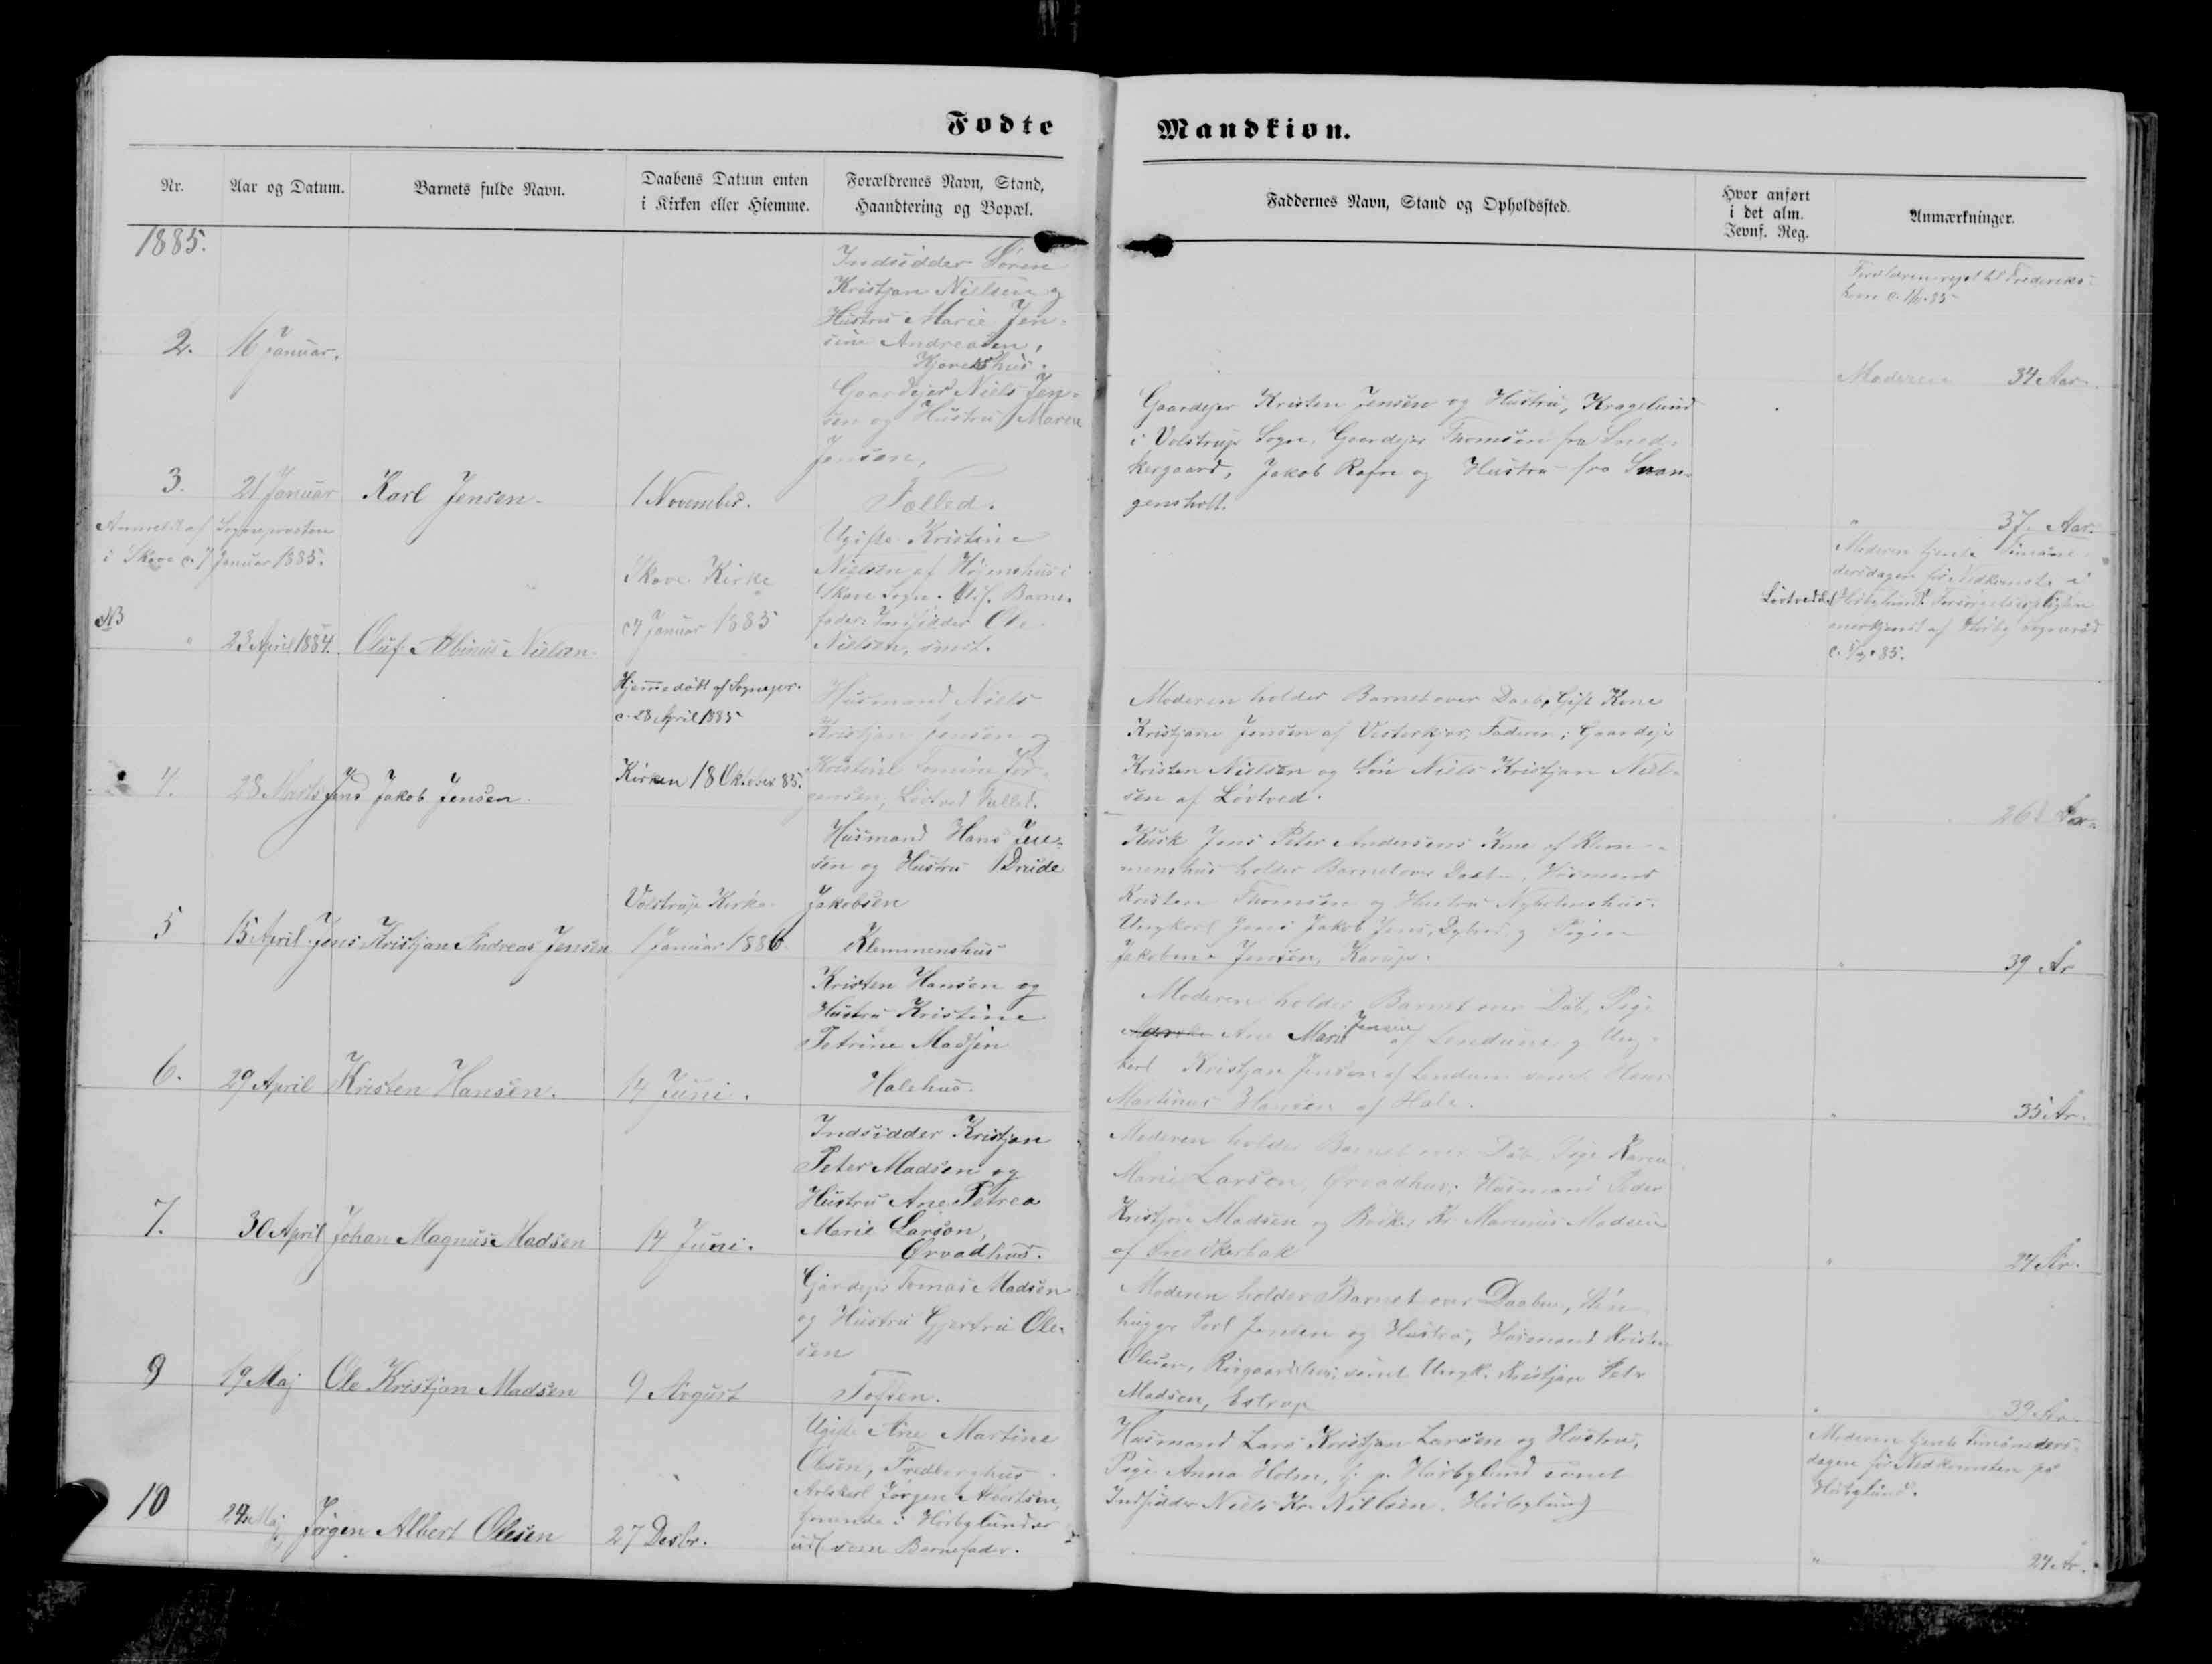 Fødte Mandkiøn.
Nr. Aar og Datum. Barnets fulde Navn. Daabens Datum enten i Kirken eller Hiemme. Forældrenes Navn, Stand, Haandtering og Bopæl. Faddernes Navn, Stand og Opholdssted. Hvor anført i det alm. Jevnf. Reg. Anmærkninger.
1885.
2. 16 Januar.
Indsidder Søren
Kristjan Nielsen og
Hustru Marie Jen-
sine Andreasen,
Forældrene rejst til Frederiks-
havn
Moderen 34 Aar.
3. 21 Januar Karl Jensen. 1 November.
Gaardejer Niels Jen-
sen og Hustru Maren
Jensen,
Fælled.
Gaardejer Kristen Jensen og Hustru, Kragelund
i Volstrup Sogn, Gaardejer Thomsen fra Sned-
kergaard, Jakob Rafn og Hustru fra Svan-
gensholt.
" 37 Aar.
Anmeldt af Sognepræsten
i Skæve d. 7 Januar 1885.
NB
" 23 April 1884. Oluf Albinus Nielsen
Skæve Kirke
d 4 Januar 1885
Ugifte Kristine
Nielsen af Højenshus i
Skæve Sogn. Udl. Barne-
fader: Indsidder Ole
Nielsen, smst.
Moderen tjente Timaane-
dersdagen før Nedkomsten i
Hørbylund. Forsørgelsespligten
anerkjendt af Hørby Sogneraad
4. 28 Marts Jens Jakob Jensen.
Hjemmedøbt af Sognepr.
d. 28 April 1885
Kirken 18 Oktober 85.
Husmand Niels
Kristjan Jensen og
Kristine Tomine Jør-
gensen, Løvtved Fælled.
Moderen holder Barnet over Daab, Gift Kone
Kristjane Jensen af Vesterkjær, Faderen; Gaardejer
Kristen Nielsen og Søn Niels Kristjan Niel-
sen af Løvtved.
5 15 April Jens Kristjan Andreas Jensen
Volstrup Kirke
1 Januar 1886.
Husmand Hans Jen-
sen og Hustru Drude
Jakobsen
Klemmenshus
Kusk Jens Peter Andersens Kone af Klem-
menshus holder Barnet over Daaben, Husmand
Kristen Thomsen og Hustru Nyholmshus.
Ungkarl Jens Jakob Jens, Dybvad og Pigen
Jakobine Jensen, Karup.
" 39 År
6. 29 April Kristen Hansen. 14 Juni.
Kristen Hansen og
Hustru Kristine
Petrine Madsen
Halehus.
Moderen holder Barnet over Dåb, Pige
Ane Marie Jensen af Lendum og Ung-
karl Kristjan Jensen af Lendum samt Hans
Martinus Hansen af Hale.
" 35 År.
7. 30 April Johan Magnus Madsen 14 Juni.
Indsidder Kristjan
Peter Madsen og
Hustru Ane Petrea
Marie Larsen,
Ørvadhus.
Moderen holder Barnet over Dåb, Pige Karen
Marie Larsen, Ørvadhus; Husmand Peder
Kristjan Madsen og Kr. Marinus Madsen
af Snedkerbak
" 24 År.
9 19 Maj Ole Kristjan Madsen 9 August
Gårdejer Tomas Madsen
og Hustru Gjertru Ole-
sen
Toften.
Moderen holder Barnet over Daaben, Sten-
hugger Jensen og Hustru, Husmand Kristen
Olesen, samt Ungk. Kristjan Peter
Madsen, Estrup
" 39 År.
10 24 Maj Jørgen Albert Olesen 27 Decbr.
Ugifte Ane Martine
Olesen,
Avlskarl Jørgen Albertsen,
tjenende i Hørbylund er
udl. som Barnefader.
Husmand Lars Kristjan Larsen og Hustru,
Pige Anna Holm, Hørbylund samt
Indsidder Niels Kr. Nielsen. Hørbylund
Moderen tjente Timåneders-
dagen før Nedkomsten på
Hørbylund.
" 24 År.